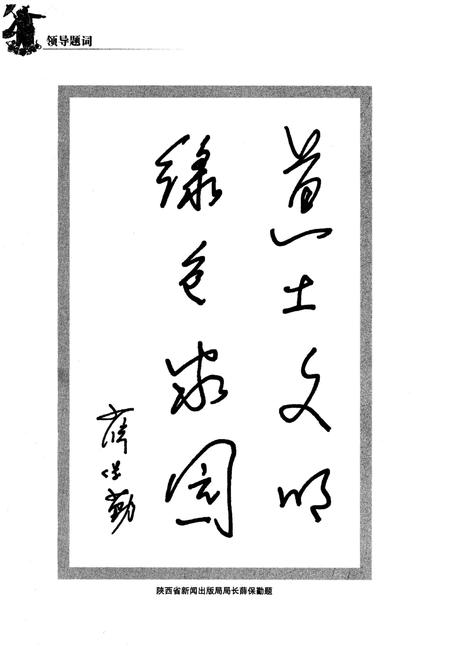 领导题词
黄土文明
绿色家园
薛保勤
陕西省新闻出版局局长薛保勤题